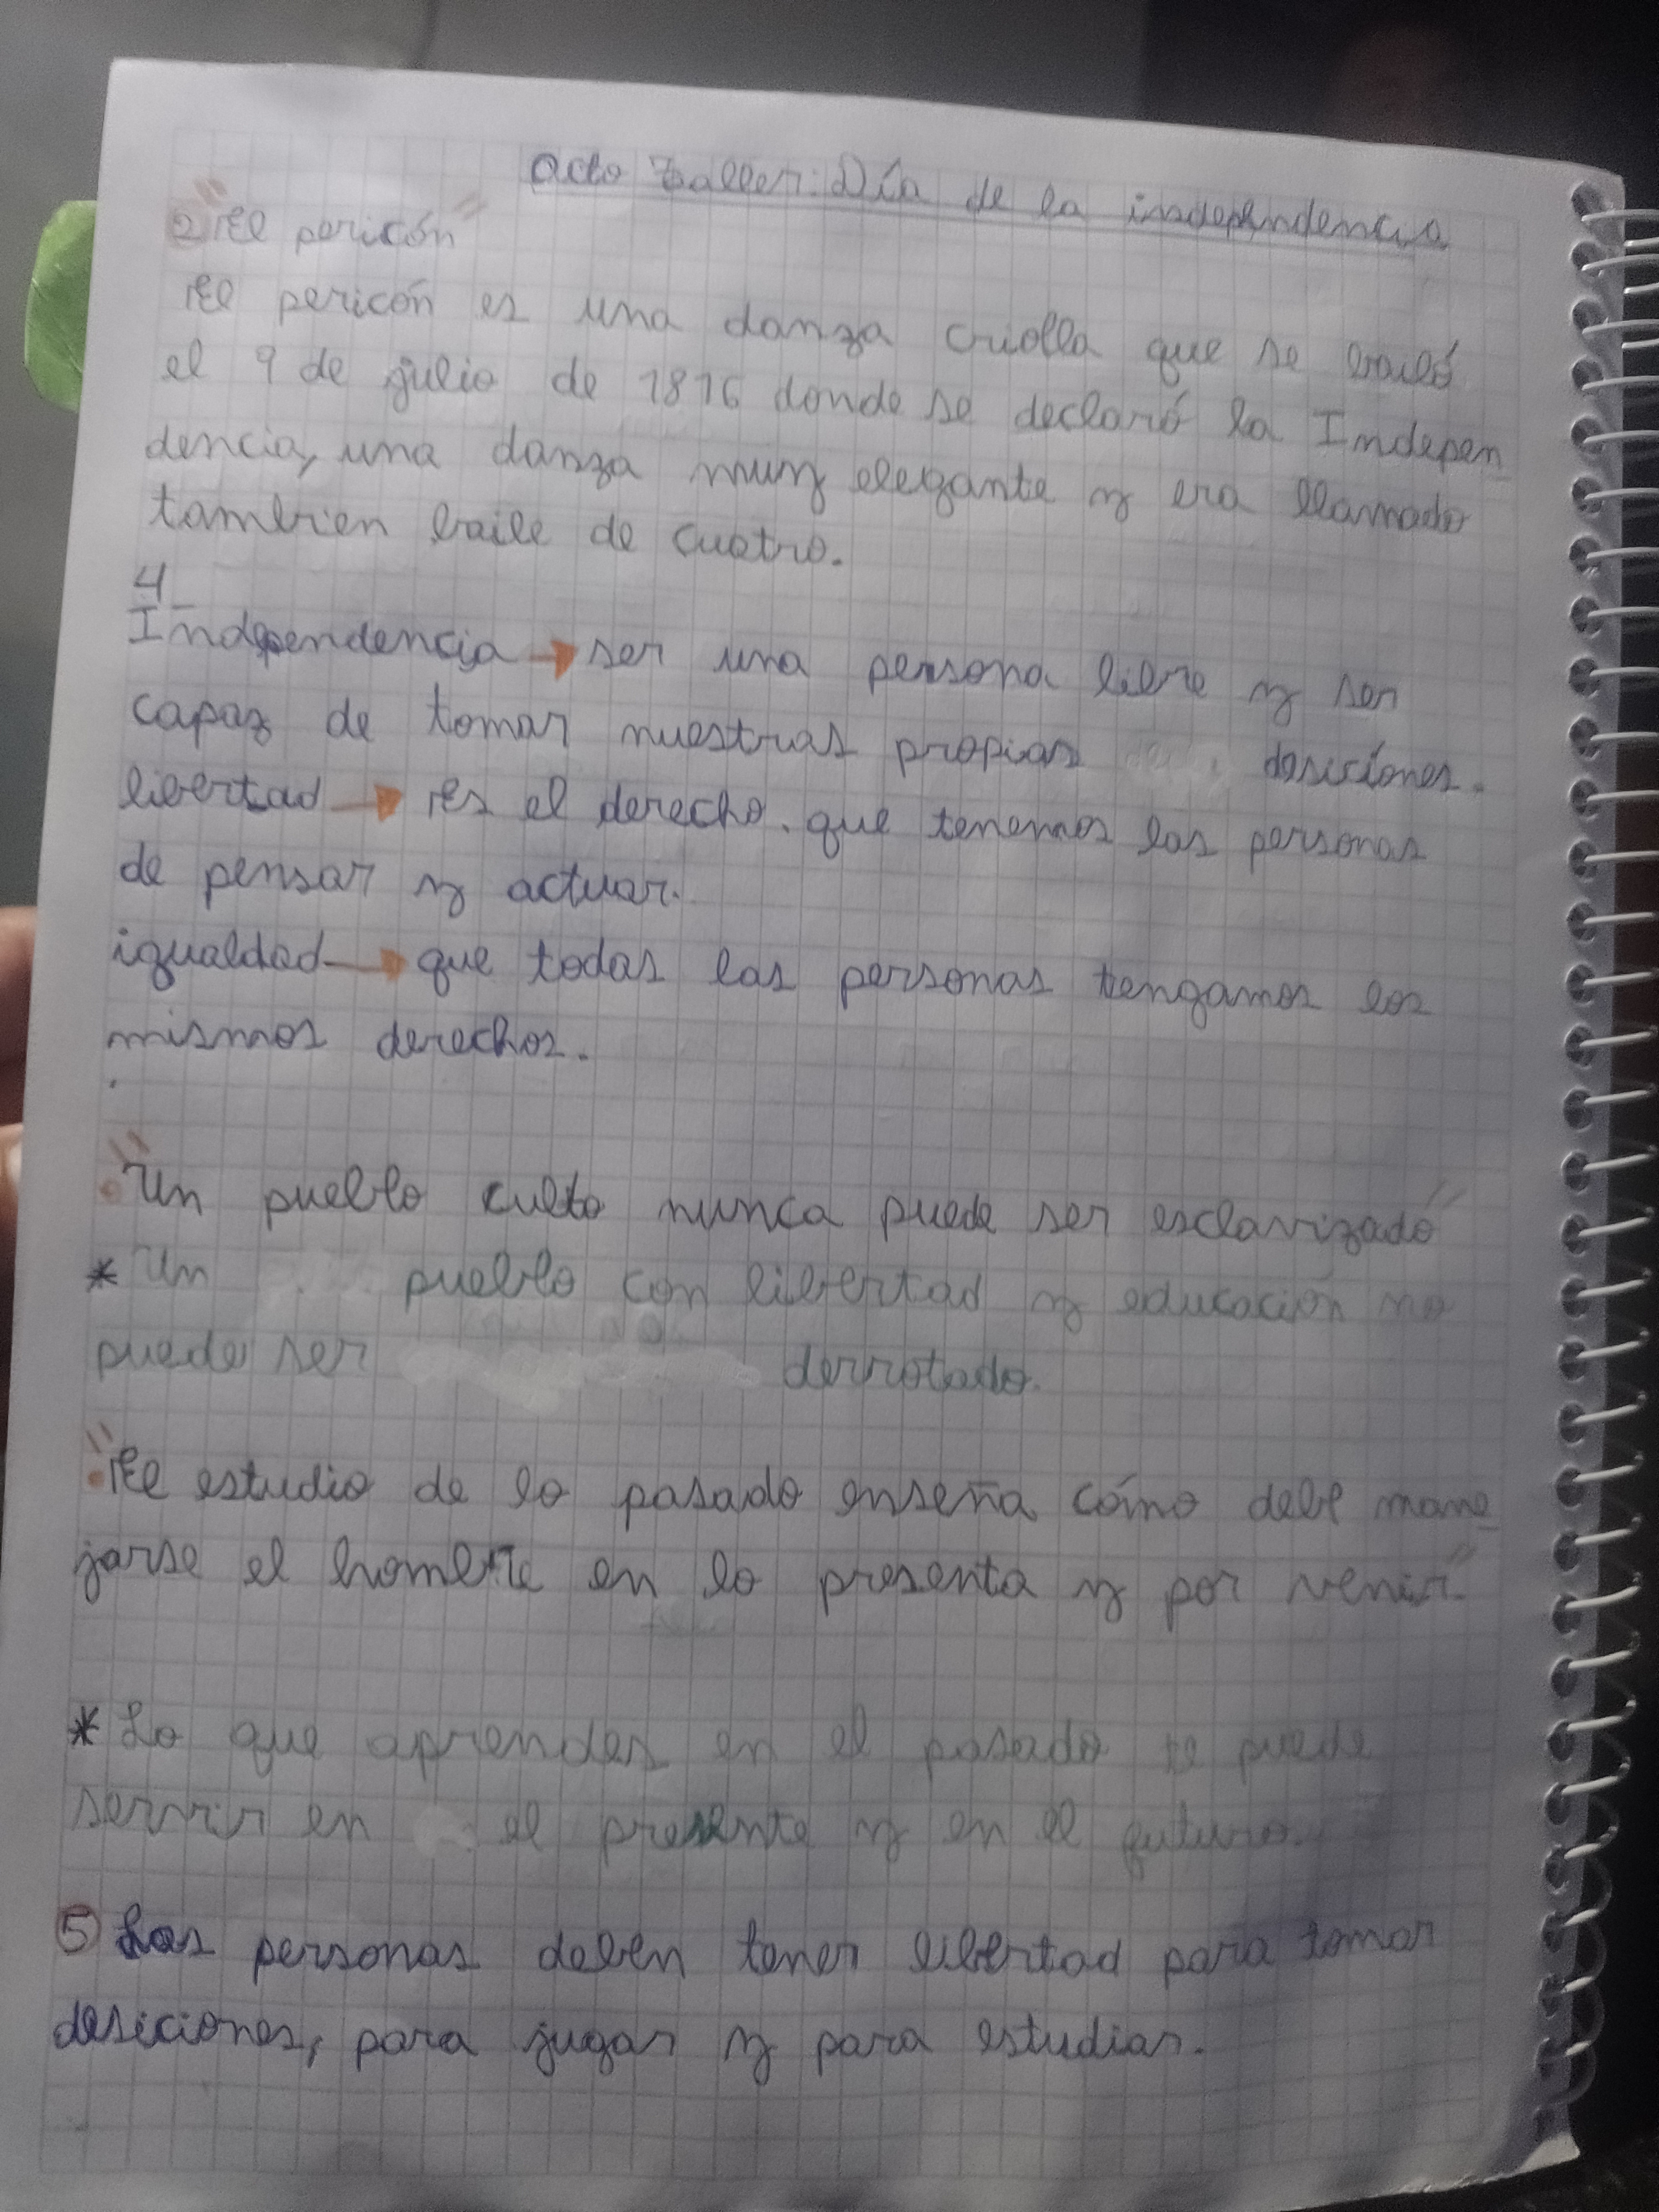 Acto Taller: Día de la independencia
2 "El pericón"
El pericón es una danza criolla que se bailó
el 9 de julio de 1816 donde se declaró la Indepen
dencia, una danza muy elegante y era llamado
tambien baile de cuatro.
4_
Independencia → ser una persona libre y ser
capaz de tomar nuestras propias desiciones.
libertad → Es el derecho. que tenemos las personas
de pensar y actuar.
igualdad → que todas las personas tengamos los
mismos derechos.
"Un pueblo culto nunca puede ser esclavizado"
* Un pueblo con libertad y educación no
puede ser derrotado.
"El estudio de lo pasado enseña cómo debe mane
jarse el hombre en lo presenta y por venir."
* Lo que aprendes en el pasado te puede
servir en el presente y en el futuro.
5 Las personas deben tener libertad para tomar
desiciones, para jugar y para estudiar.